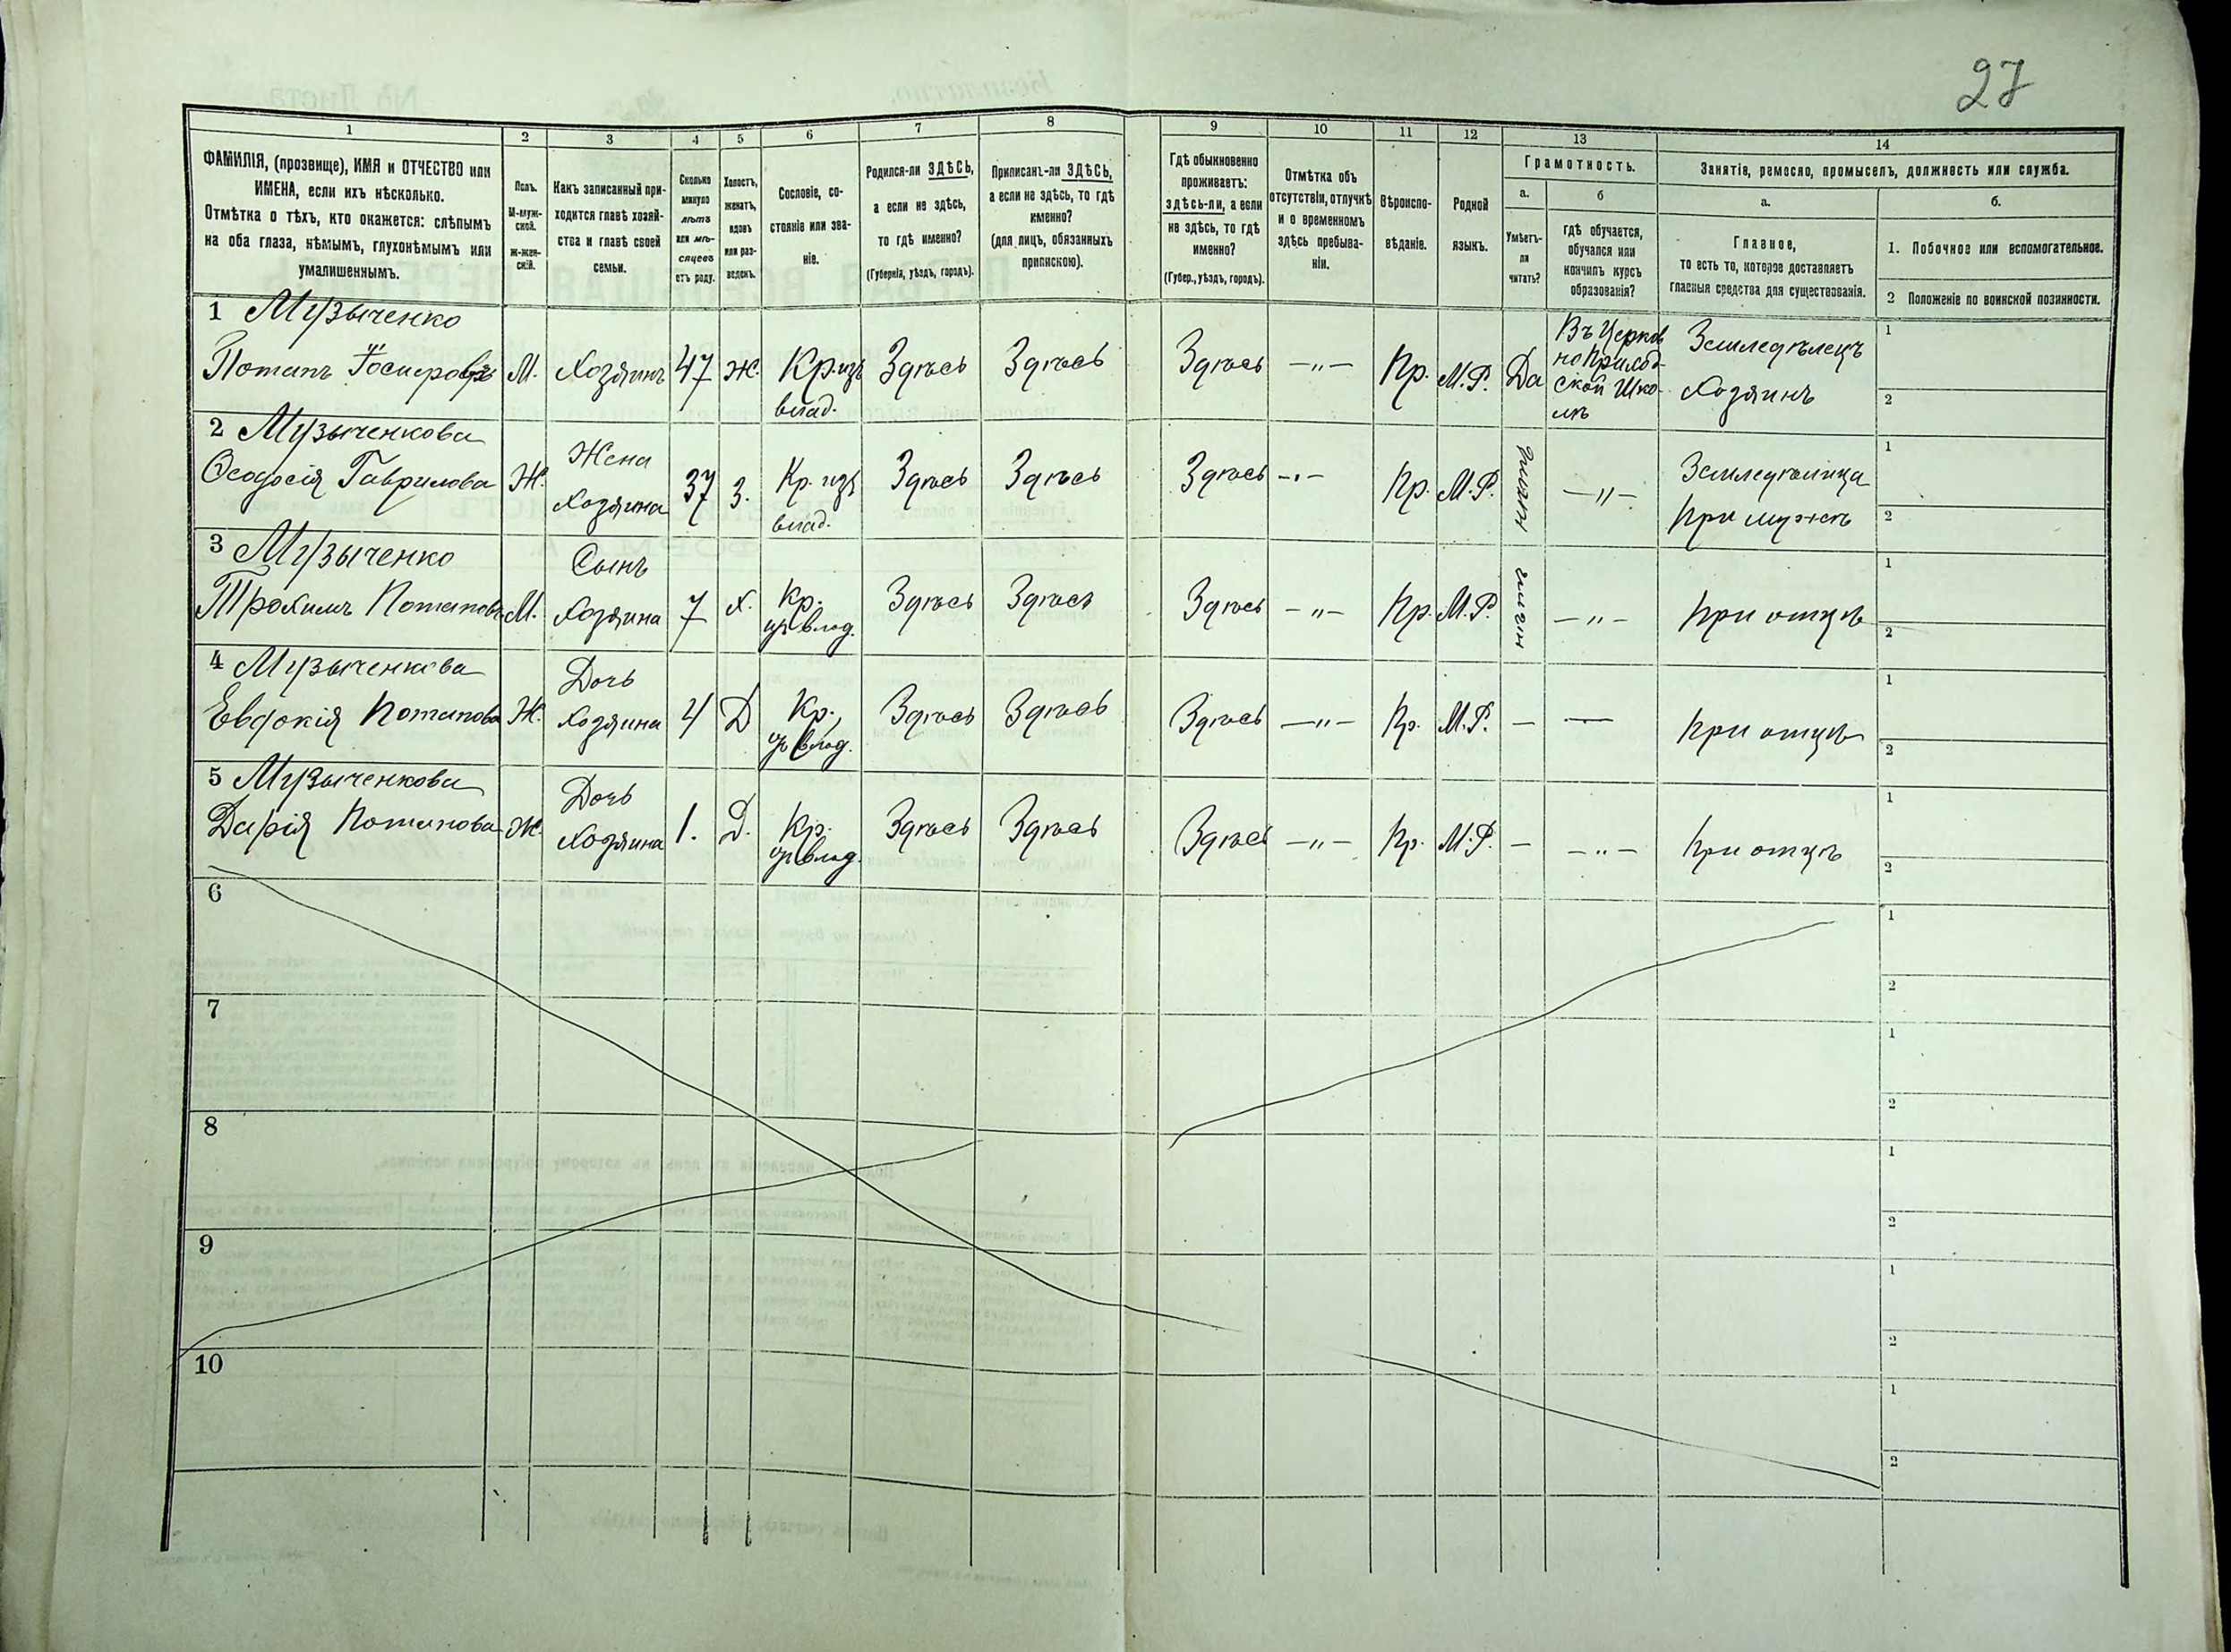 27
1
2
3
4
5
6
7
8
9
10
11
12
13
14
ФАМИЛІЯ, (прозвище), ИМЯ и ОТЧЕСТВО или
ИМЕНА, если ихъ нѣсколько.
Отмѣтка о тѣхъ, кто окажется: слѣпымъ
на оба глаза, нѣмымъ, глухонѣмымъ или
умалишеннымъ.
Полъ.
М-муж-
ской.
Ж-жен-
скій.
Какъ записанный при-
ходится главѣ хозяй-
ства и главѣ своей
семьи.
Сколько
минуло
лѣтъ
или мѣ-
сяцевъ
отъ роду.
Холостъ,
женатъ,
вдовъ
или раз-
веденъ.
Сословіе, со-
стояніе или зва-
ніе.
Родился-ли ЗДѢСЬ,
а если не здѣсь,
то гдѣ именно?
(Губернія, уѣздъ, городъ).
Приписанъ-ли ЗДѢСЬ,
а если не здѣсь, то гдѣ
именно?
(для лицъ, обязанныхъ
припискою).
Гдѣ обыкновенно
проживаетъ:
здѣсь-ли, а если
не здѣсь, то гдѣ
именно?
(Губер., уѣздъ, городъ).
Отмѣтка объ
отсутствіи, отлучкѣ
и о временномъ
здѣсь пребыва-
ніи.
Вѣроиспо-
вѣданіе.
Родной
языкъ.
Грамотность.
а.
Умѣетъ-
ли
читать?
б
гдѣ обучается,
обучался или
кончилъ курсъ
образованія?
Занятіе, ремесло, промыселъ, должность или служба.
а.
Главное,
то есть то, которое доставляетъ
главныя средства для существованія.
б.
1. Побочное или вспомогательное.
2 Положеніе по воинской повинности.
1 Музыченко
Потапъ М. Хозяинъ 47 Ж. Кр. изъ влад. Здѣсь Здѣсь Здѣсь —"— Пр. М.Р. Да Въ Церков
но Приход-
ской Шко-
лѣ
Земледѣлецъ
Хозяинъ
1
2
2 Музыченкова
Ѳеодосія Гаврилова Ж. Жена Хозяина 37 З. Кр. изъ влад. Здѣсь Здѣсь Здѣсь -"- Пр. М.Р. —"—
Земледѣлица
При мужѣ
1
2
3 Музыченко
Трохимъ Потаповъ М. Сынъ Хозяина 7 Х. Кр. изъ влад. Здѣсь Здѣсь Здѣсь —"— Пр. М.Р. —"— При отцѣ
1
2
4 Музыченкова
Евдокія Потапова Ж. Дочь Хозяина 4 Д Кр. изъ влад. Здѣсь Здѣсь Здѣсь —"— Пр. М.Р. — — При отцѣ
1
2
5 Музыченкова
Дарія Потапова Ж. Дочь Хозяина 1. Д. Кр. изъ влад. Здѣсь Здѣсь Здѣсь —"— Пр. М.Р. — —"— При отцѣ
1
2
6
1
2
7
1
2
8
1
2
9
1
2
10
1
2